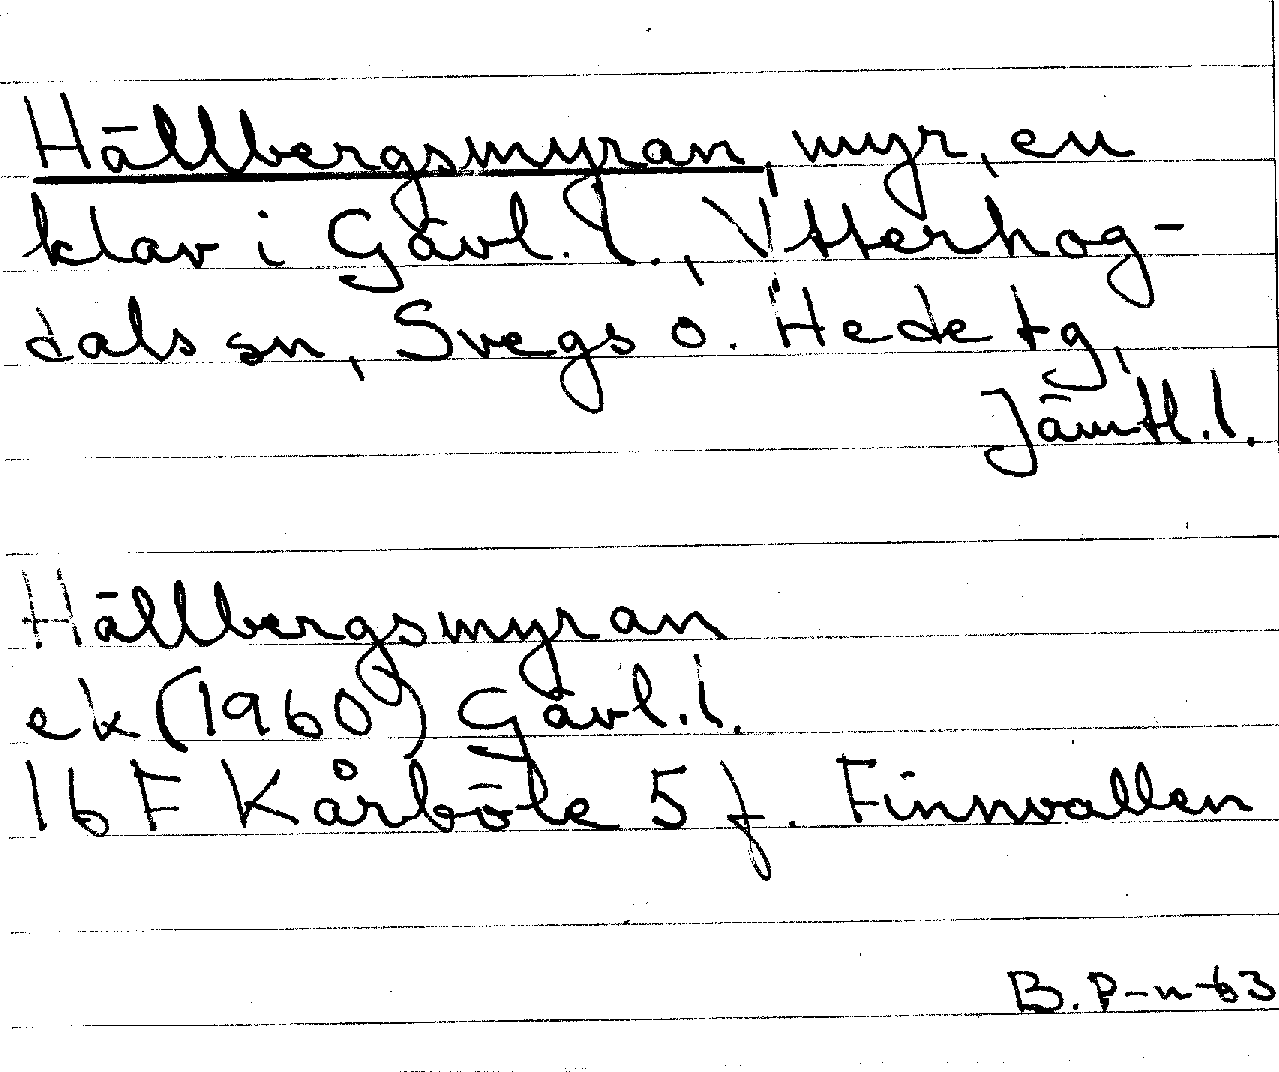 Hällbergsmyran, myr, en
klav i Gävl. l., Ytterhog-
dals sn, Svegs o. Hede tg,
Jämtl. l.
Hällbergsmyran
ek (1960) Gävl. l.
16 F Kårböle 5 f. Finnvallen
B. P-n-63